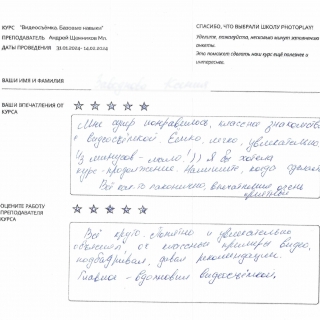 КУРС "Видеосъёмка. Базовые навыки"
ПРЕПОДАВАТЕЛЬ Андрей Щанников Мл.
ДАТЫ ПРОВЕДЕНИЯ 31.01.2024- 14.02.2024
СПАСИБО, ЧТО ВЫБРАЛИ ШКОЛУ PHOTOPLAY!
Уделите, пожалуйста, несколько минут заполнению
анкеты.
Это поможет сделать наш курс ещё полезнее и
интереснее.
ВАШИ ИМЯ И ФАМИЛИЯ
ВАШИ ВПЕЧАТЛЕНИЯ ОТ
КУРСА
Мне супер понравилось, классное знакомство
с видеосъёмкой. Ёмко, легко, увлекательно.
Из минусов - мало! )) Я бы хотела
курс-продолжение. Напишите, когда сделаете
Всё как-то лаконично, впечатления очень
приятные
ОЦЕНИТЕ РАБОТУ
ПРЕПОДАВАТЕЛЯ
КУРСА
Всё круто. Понятно и увлекательно
объяснял, классные примеры видео,
подбадривал, давал рекомендации.
Главное - вдохновил видосъёмкой.